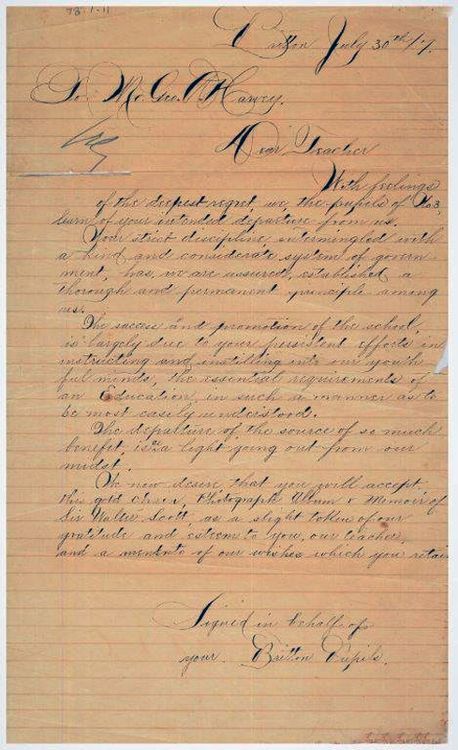 78.1.11
Britton July 30th /7.
To Mr. Geo. O. Harvey.
Dear Teacher
With feelings
of the deepest regret we, the pupils of No 3,
learn of your intended departure from us.
Your strict discipline, intermingled with
a kind and considerate system of govern
ment, has, we are assured, established a
thorough and permanent principle among
us.
The success and promotion of the school,
is largely due to your persistent efforts in
instructing and instilling into our youth
ful minds, the essential requirements of
an Education, in such a manner as to
be most easily understood.
The departure of the source of so much
benefit, is as a light going out from our
midst.
We now desire that you will accept
this gold Photograph Album & Memoirs of
Sir Walter Scott, as a slight token of our
gratitude and esteem to you, our teacher,
and a memento of our wishes which you retain
Signed in behalf of
your Britton Pupils.